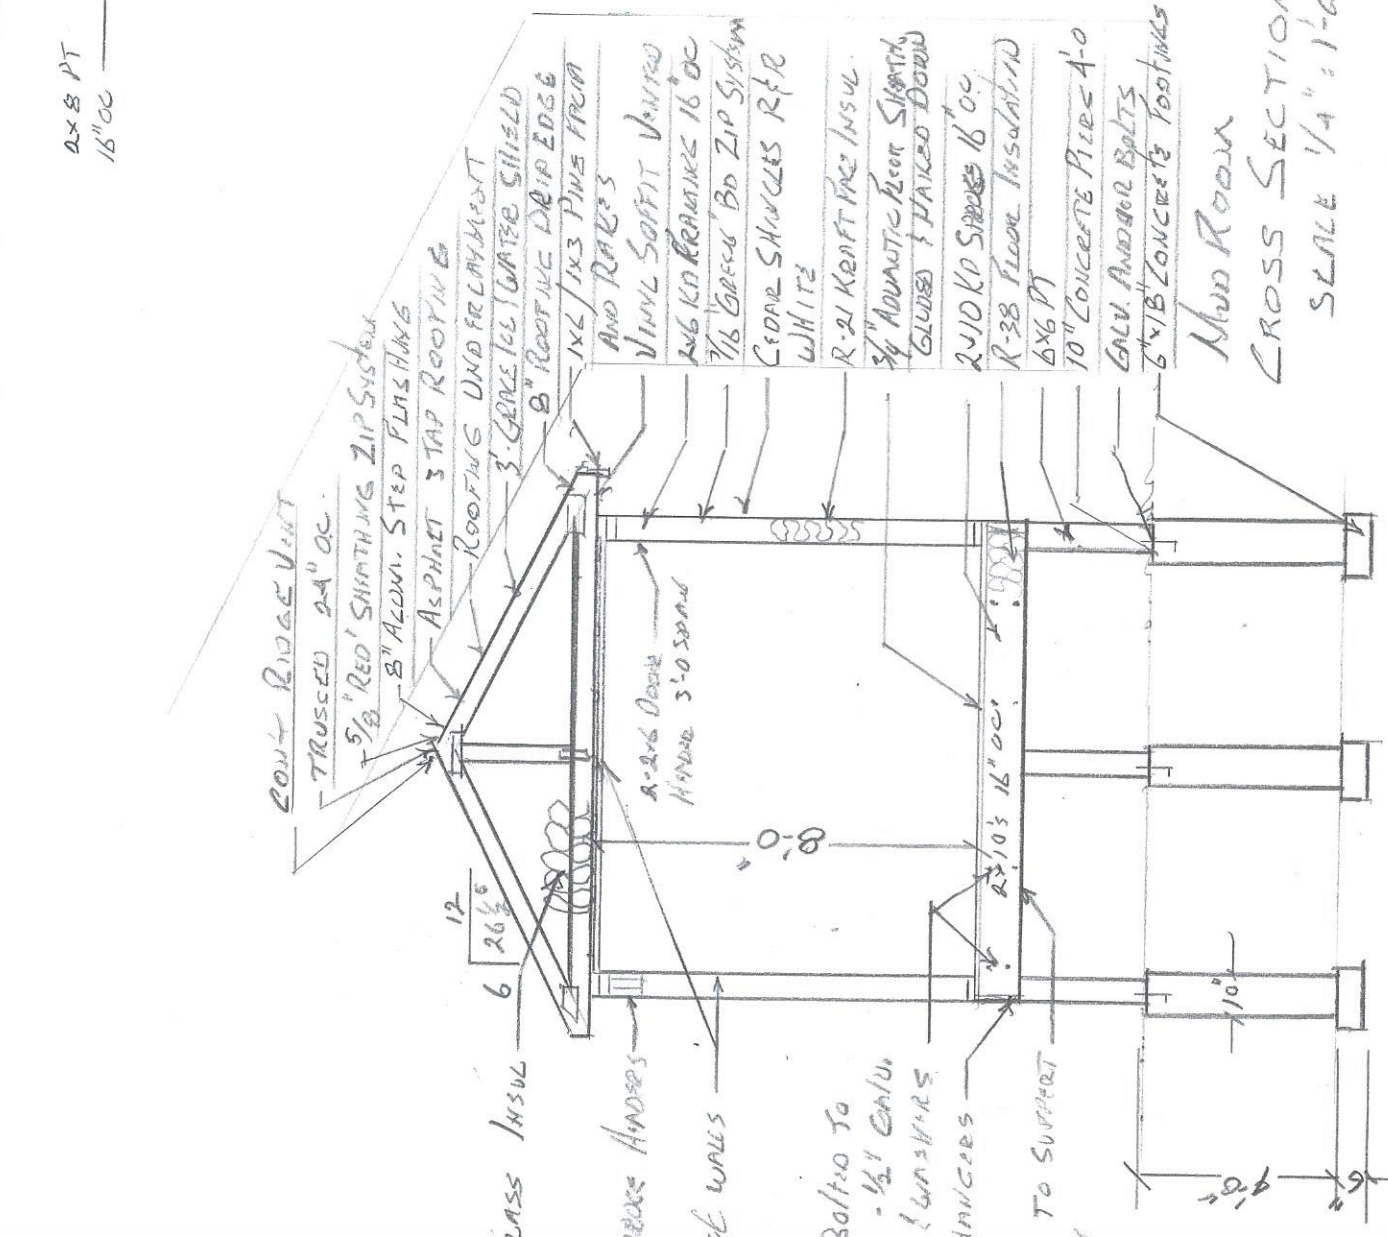 2x8 PT
16" OC
CONT RIDGE VENT
TRUSSED 24" OC
5/8 'RED' SHEATHING ZIP SYSTEM
8" ALUM. STEP FLASHING
ASPHALT 3 TAP ROOFING
ROOFING UNDERLAYMENT
3' GRACE ICE & WATER SHIELD
8" ROOFING DRIP EDGE
1x6 / 1x3 PINE FACIA
AND RAKES
VINYL SOFFIT VENTED
2x6 KD FRAMING 16" OC
7/16 'GREEN' BD ZIP SYSTEM
CEDAR SHINGLES R&R
WHITE
R-21 KRAFT FACE INSUL.
3/4" ADVANTIC FLOOR SHEATH.
GLUED & NAILED DOWN
2x10 KD 16" OC.
R-38 FLOOR INSULATION
6x6 PT
10" CONCRETE PIERS 4'-0
GALV. ANCHOR BOLTS
6"x18" CONCRETE FOOTINGS
12
6
2-2x6 DOOR
HEADER 3'-0 SPAN
8'-0
2x10's 16" OC.
LASS INSUL
HEADERS
WALLS
BOLTED TO
- 1/2" GALV.
& WASHERS
HANGERS
TO SUPPORT
10"
4'-0"
6"
MUD ROOM
CROSS SECTION
SCALE 1/4" = 1'-0